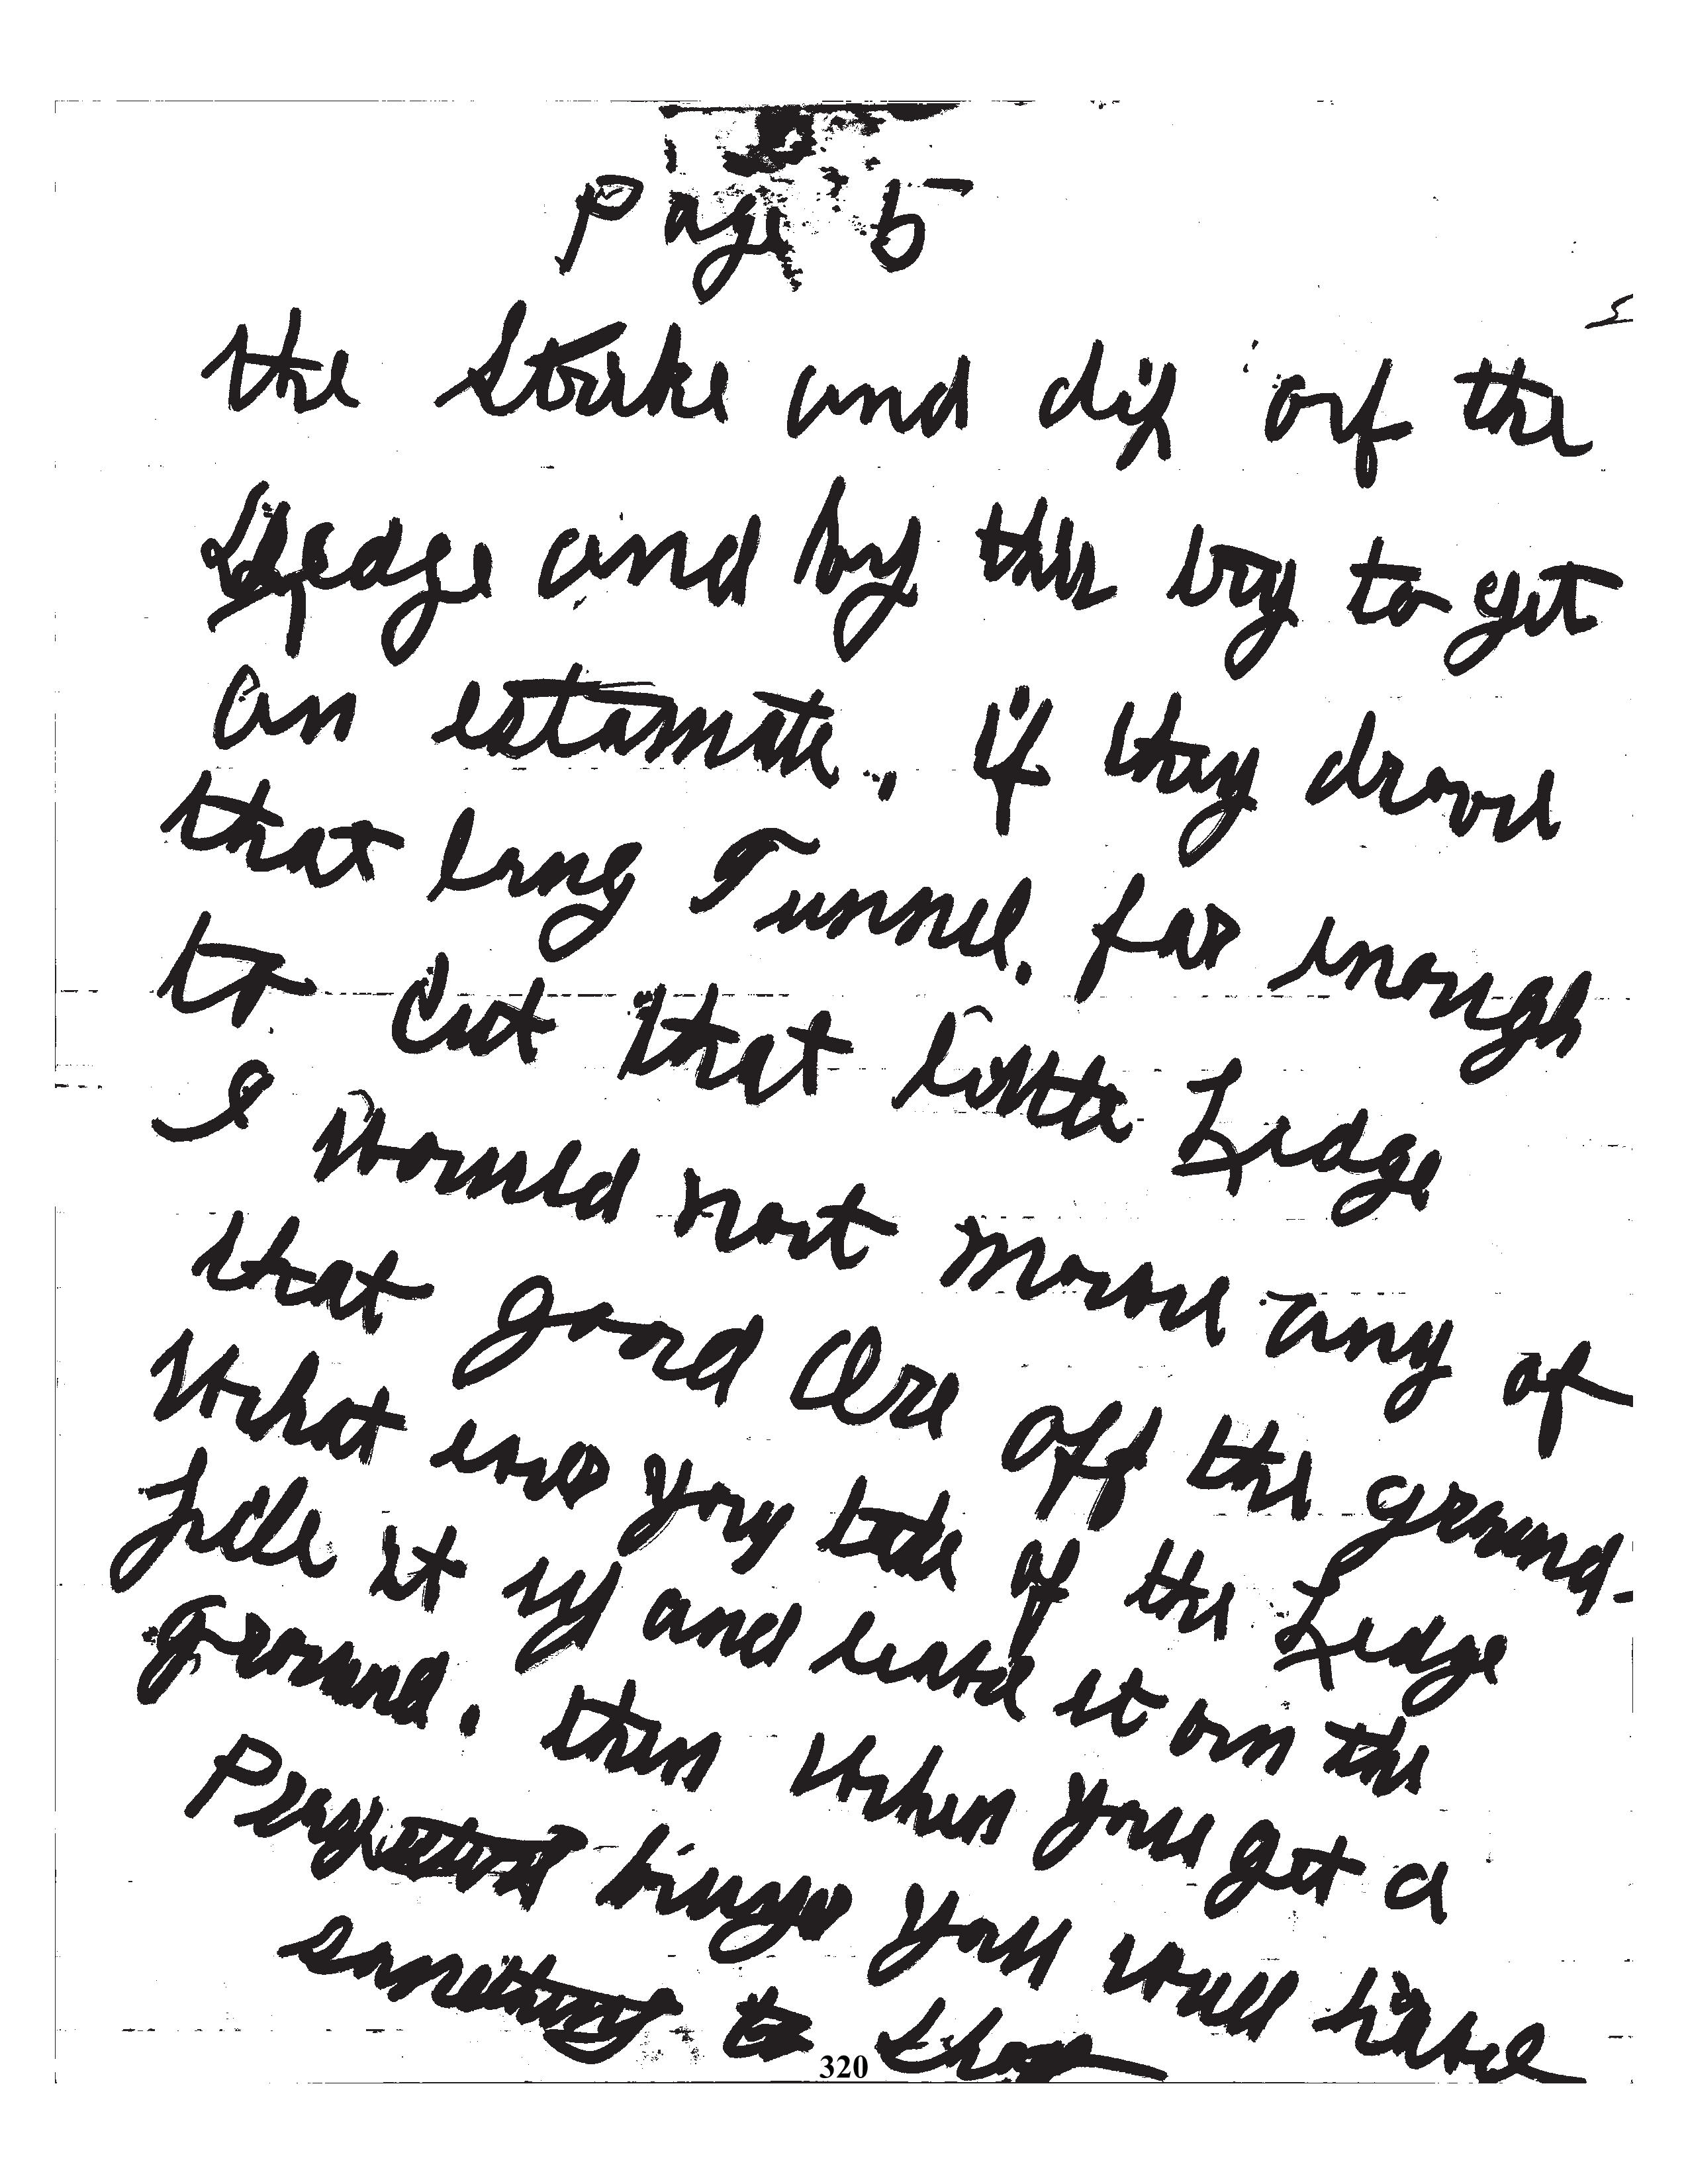 Page 5
the Strike and dip of the
Ledge and by this try to get
an estamate. if they drove
that long Tunnel. far enough
to Cut that little Ledge
I would not move any of
that good Ore off the ground.
What ever you take of the Ledge
Pile it up and leave it on the
ground. then when you get a
buyer you will have
something to show
320